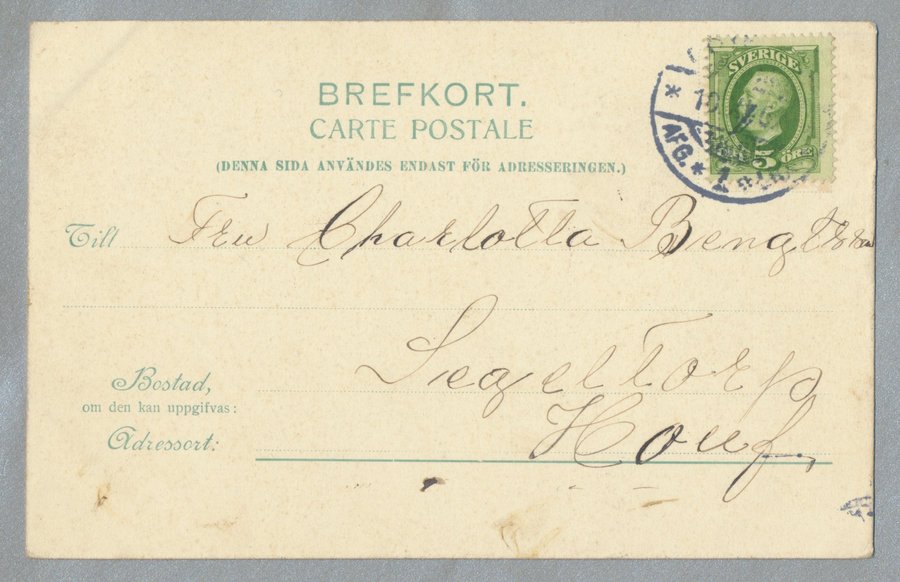 BREFKORT.
CARTE POSTALE
(DENNA SIDA ANVÄNDES ENDAST FÖR ADRESSERINGEN.)
SVERIGE
5 ÖRE
AFG. * 1
Till Fru Charlotta Bengtsson
Segeltorp
Bostad,
om den kan uppgifvas:
Houf,
Adressort: